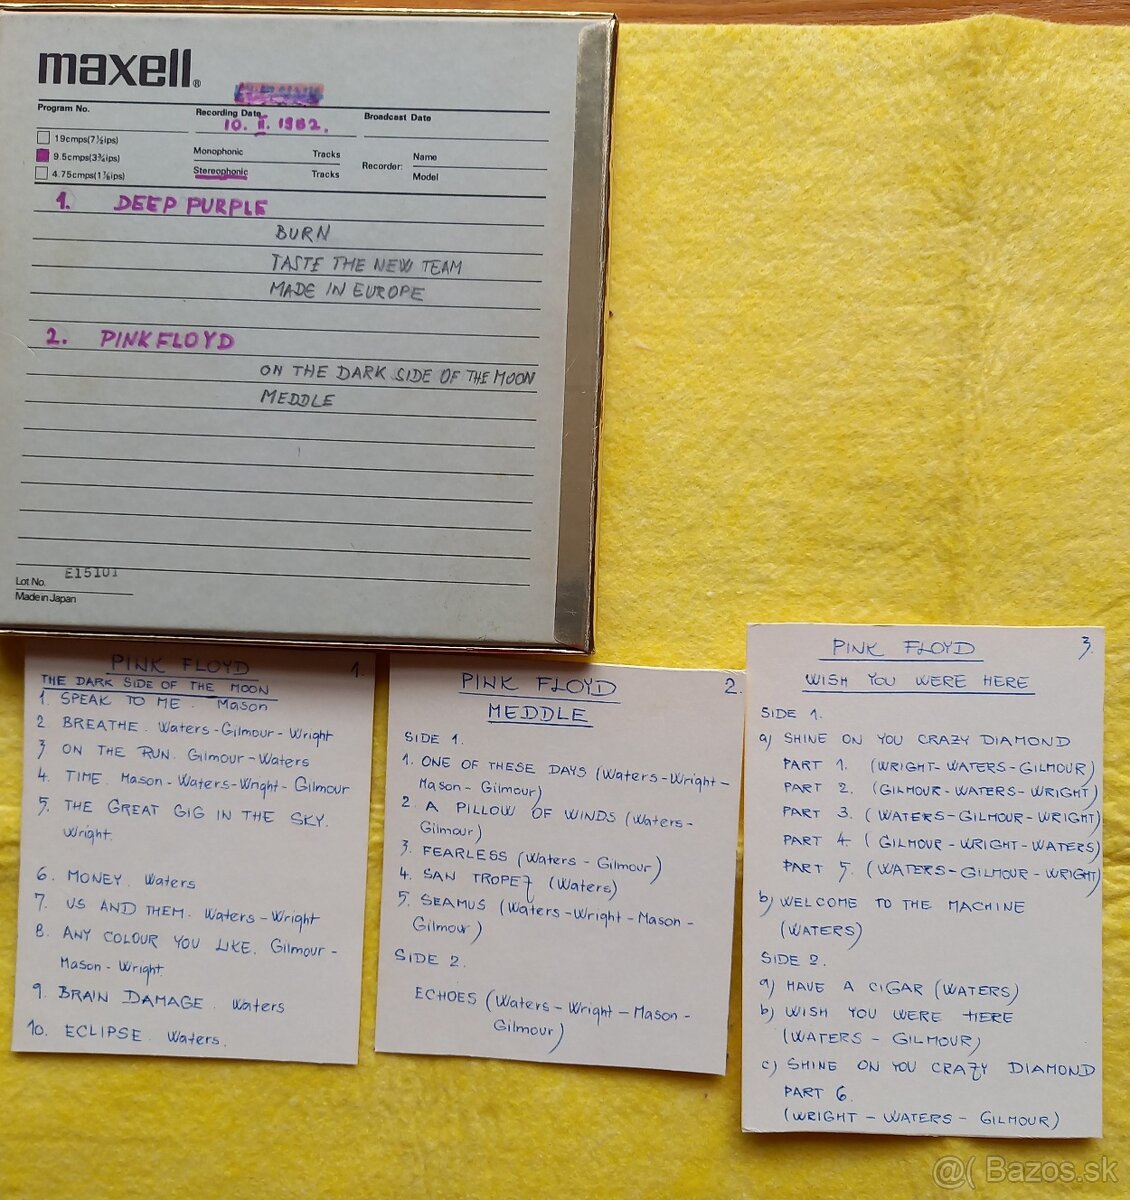 maxell®
Program No.
Recording Date
Broadcast Date
10. II. 1982.
19cmps(7½ips)
9.5cmps(3¾ips)
4.75cmps(1⅞ips)
Monophonic Tracks
Stereophonic Tracks
Recorder: Name
Model
1. DEEP PURPLE
BURN
TASTE THE NEW TEAM
MADE IN EUROPE
2. PINK FLOYD
ON THE DARK SIDE OF THE MOON
MEDDLE
Lot No. E15101
Made in Japan
PINK FLOYD 1.
THE DARK SIDE OF THE MOON
1. SPEAK TO ME. Mason
2 BREATHE. Waters-Gilmour-Wright
3 ON THE RUN. Gilmour-Waters
4. TIME. Mason-Waters-Wright-Gilmour
5. THE GREAT GIG IN THE SKY.
Wright.
6. MONEY. Waters
7. US AND THEM. Waters-Wright
8. ANY COLOUR YOU LIKE. Gilmour-
Mason-Wright.
9. BRAIN DAMAGE. Waters
10. ECLIPSE. Waters.
PINK FLOYD 2.
MEDDLE
SIDE 1.
1. ONE OF THESE DAYS (Waters-Wright-
Mason-Gilmour)
2. A PILLOW OF WINDS (Waters-
Gilmour)
3. FEARLESS (Waters-Gilmour)
4. SAN TROPEZ (Waters)
5. SEAMUS (Waters-Wright-Mason-
Gilmour)
SIDE 2.
ECHOES (Waters-Wright-Mason-
Gilmour)
PINK FLOYD 3.
WISH YOU WERE HERE
SIDE 1.
a) SHINE ON YOU CRAZY DIAMOND
PART 1. (WRIGHT-WATERS-GILMOUR)
PART 2. (GILMOUR-WATERS-WRIGHT)
PART 3. (WATERS-GILMOUR-WRIGHT)
PART 4. (GILMOUR-WRIGHT-WATERS)
PART 5. (WATERS-GILMOUR-WRIGHT)
b) WELCOME TO THE MACHINE
(WATERS)
SIDE 2.
a) HAVE A CIGAR (WATERS)
b) WISH YOU WERE HERE
(WATERS-GILMOUR)
c) SHINE ON YOU CRAZY DIAMOND
PART 6.
(WRIGHT-WATERS-GILMOUR)
@( Bazos.sk